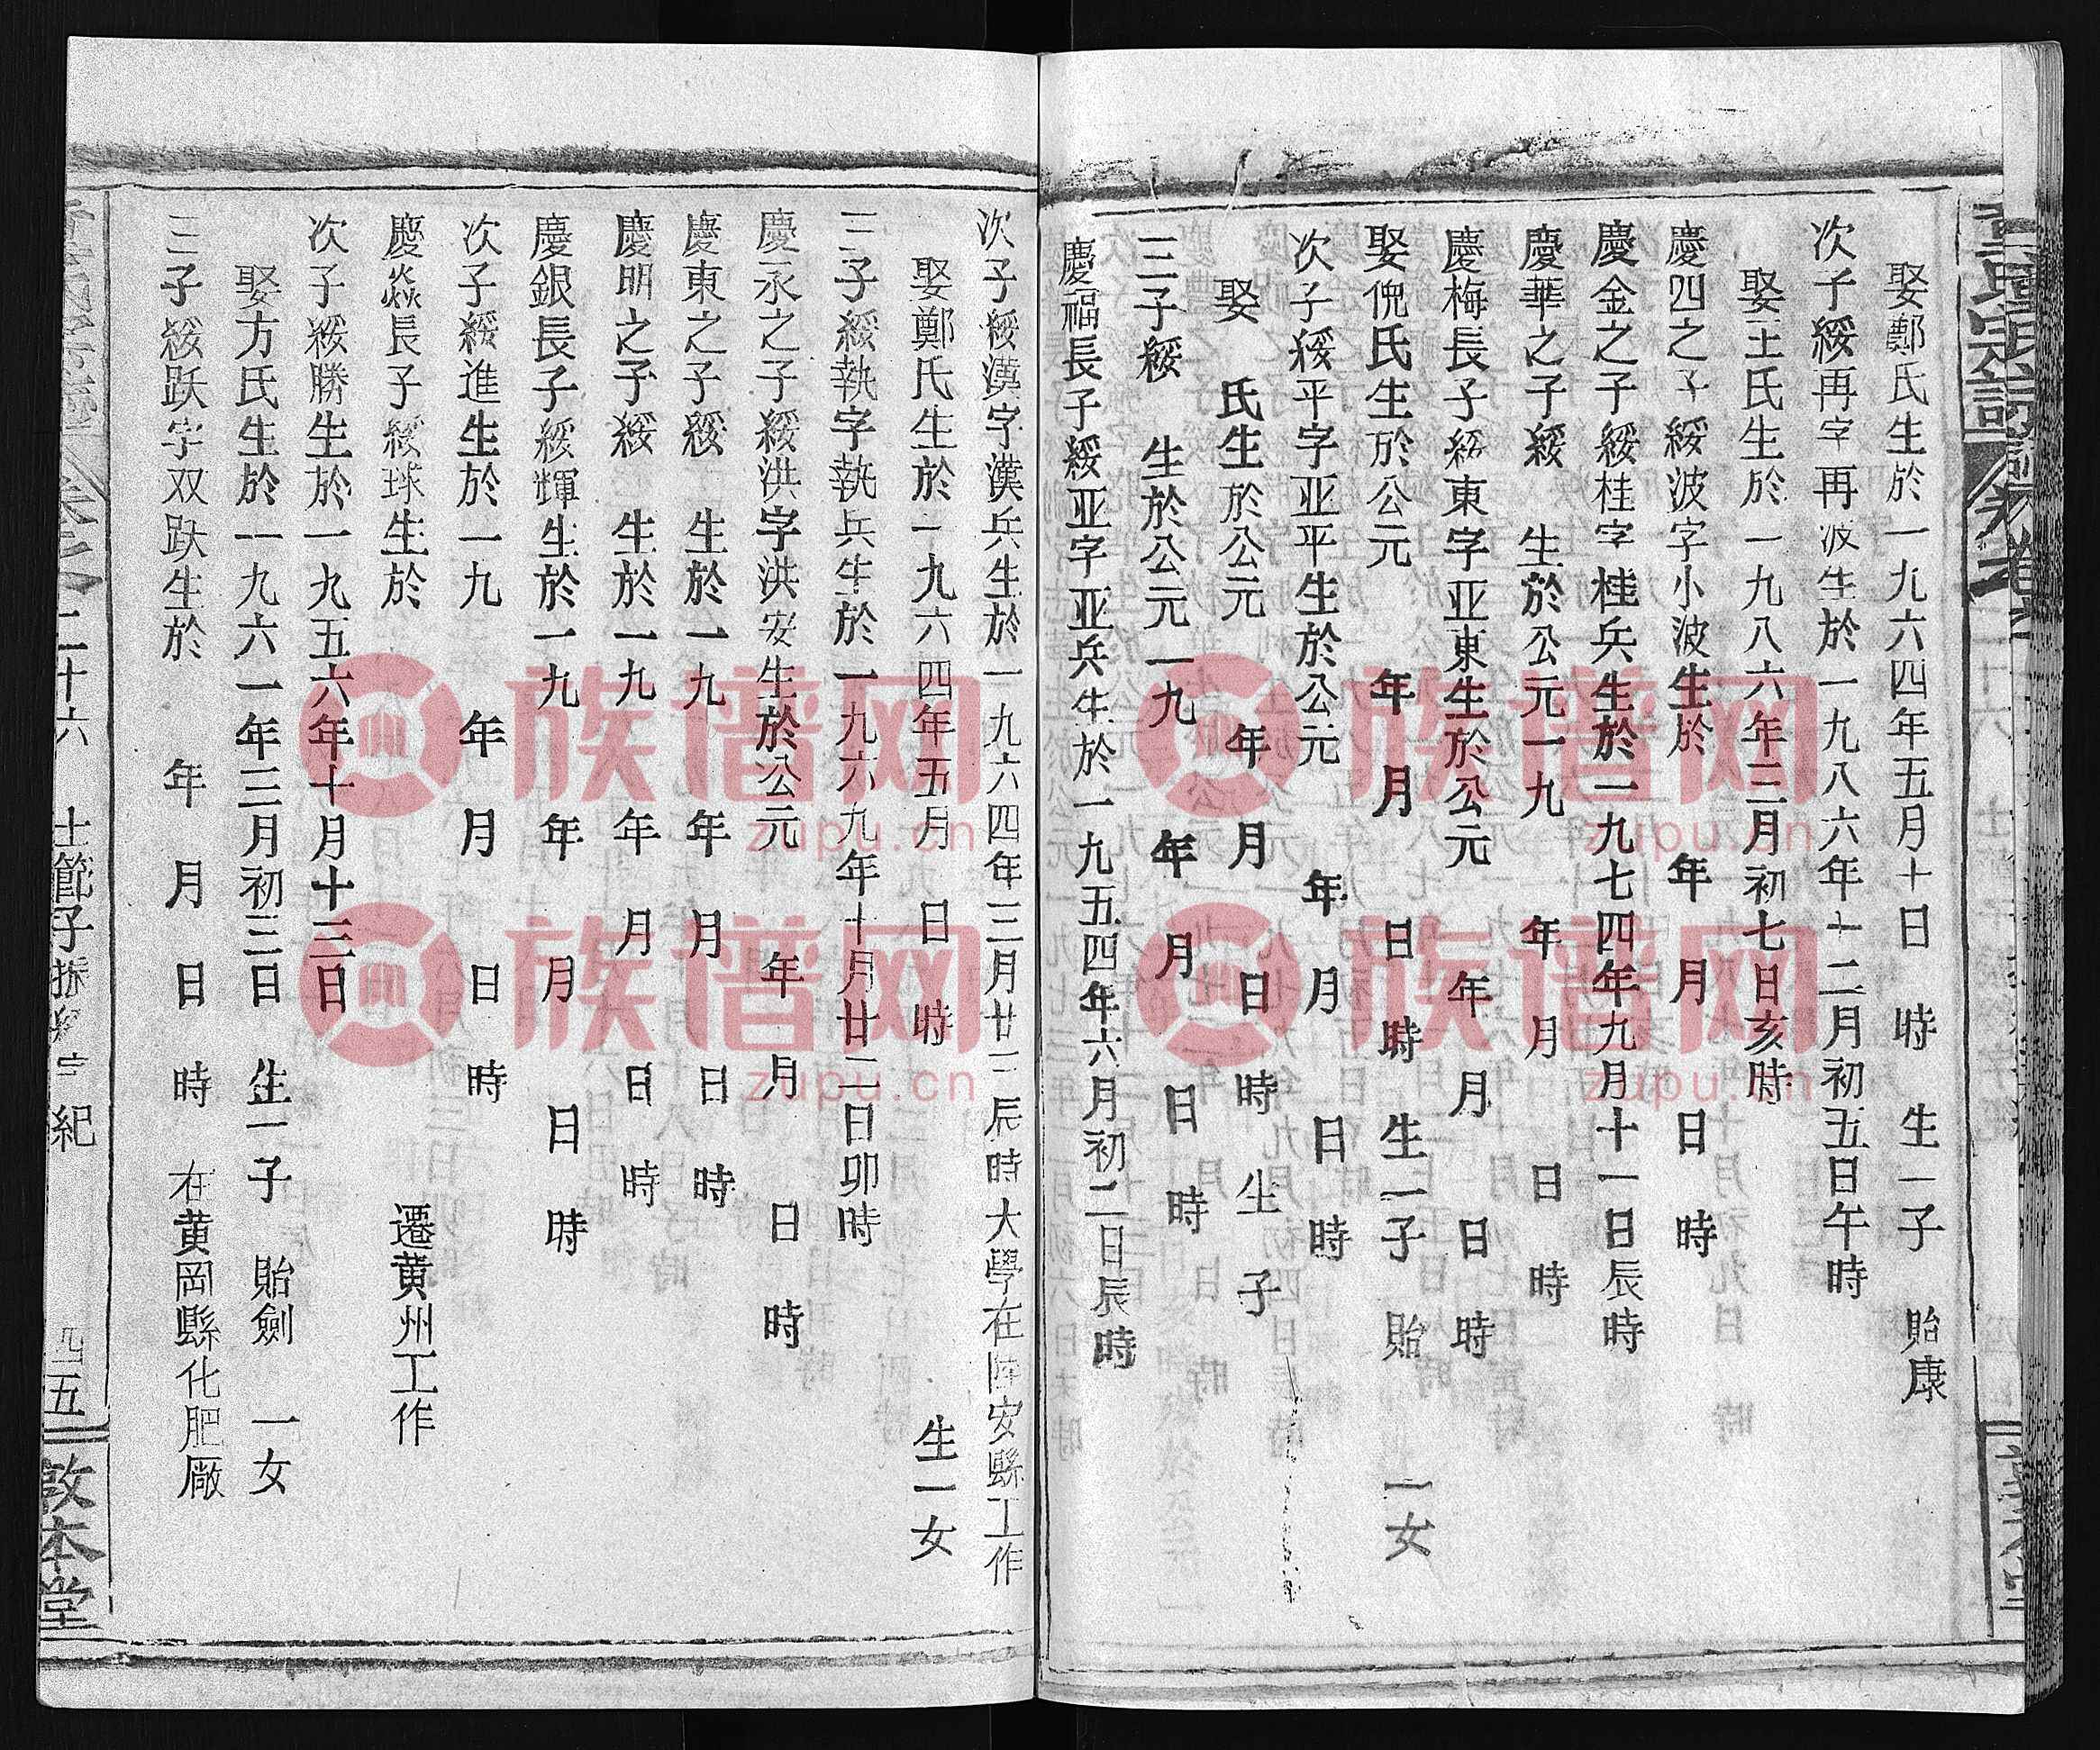 娶鄭氏生於一九六四年五月十日　時　生一子　貽康
次子綏再字再波生於一九八六年十二月初五日午時
娶王氏生於一九八六年三月初七日亥時
慶四之子綏波字小波生於　年　月　日　時
慶金之子綏桂字桂兵生於一九七四年九月十一日辰時
慶華之子綏　生於公元一九　年　月　日　時
慶梅長子綏東字亚東生於公元　年　月　日　時
娶倪氏生於公元　年　月　日　時　生一子　貽　一女
次子綏平字亚平生於公元　年　月　日　時
娶　氏生於公元　年　月　日　時　生　子
三子綏　生於公元一九　年　月　日　時
慶福長子綏亚字亚兵生於一九五四年六月初二日辰時
次子綏漢字漢兵生於一九六四年三月廿二辰時大學在安縣工作
娶鄭氏生於一九六四年五月　日　時　生一女
三子綏執字執兵生於一九六九年十月廿二日卯時
慶永之子綏洪字洪安生於公元　年　月　日　時
慶東之子綏　生於一九　年　月　日　時
慶明之子綏　生於一九　年　月　日　時
慶銀長子綏輝生於一九　年　月　日　時
次子綏進生於一九　年　月　日　時
慶焱長子綏球生於　遷黄州工作
次子綏勝生於一九五六年十月十三日
娶方氏生於一九六一年三月初三日　生一子　貽劍　一女
三子綏跃字双跃生於　年　月　日　時　在黄岡縣化肥廠
二十六　士節子振　紀　四五　敦本堂
族谱网
zupu.cn
族谱网
zupu.cn
族谱网
zupu.cn
族谱网
zupu.cn